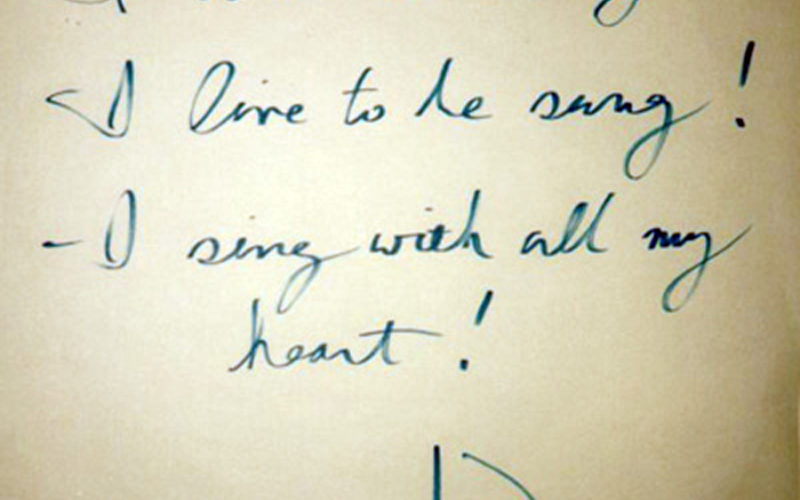 I live to be sung!
- I sing with all my
heart!